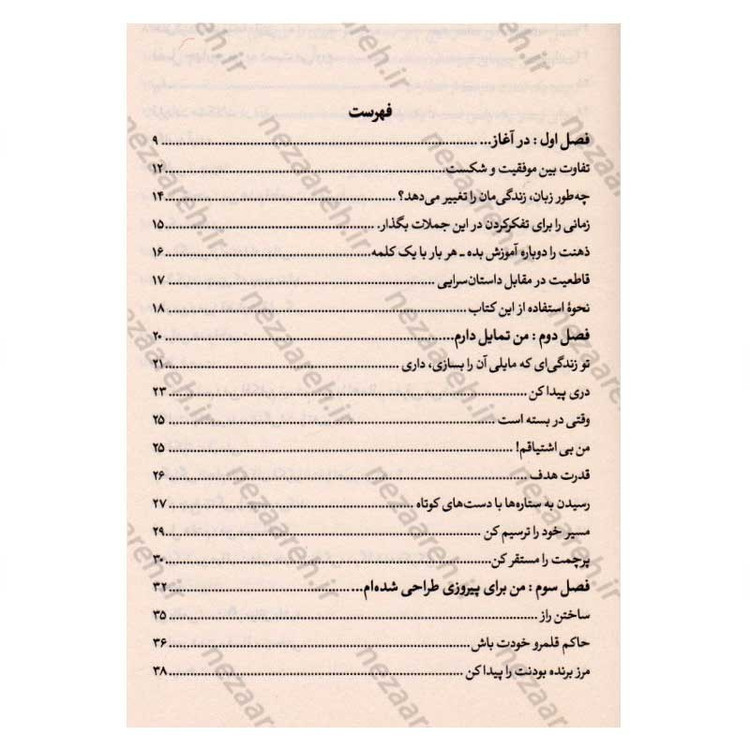 فهرست
فصل اول : در آغاز... ۹
تفاوت بین موفقیت و شکست ۱۲
چه‌طور زبان، زندگی‌مان را تغییر می‌دهد؟ ۱۴
زمانی را برای تفکرکردن در این جملات بگذار. ۱۵
ذهنت را دوباره آموزش بده ـ هر بار با یک کلمه ۱۶
قاطعیت در مقابل داستان‌سرایی ۱۷
نحوهٔ استفاده از این کتاب ۱۸
فصل دوم : من تمایل دارم ۲۰
تو زندگی‌ای که مایلی آن را بسازی، داری ۲۱
دری پیدا کن ۲۳
وقتی در بسته است ۲۵
من بی اشتیاقم! ۲۵
قدرت هدف ۲۶
رسیدن به ستاره‌ها با دست‌های کوتاه ۲۷
مسیر خود را ترسیم کن ۲۹
پرچمت را مستقر کن ۳۰
فصل سوم : من برای پیروزی طراحی شده‌ام ۳۲
ساختن راز ۳۵
حاکم قلمرو خودت باش ۳۶
مرز برنده بودنت را پیدا کن ۳۸
nezaareh.ir